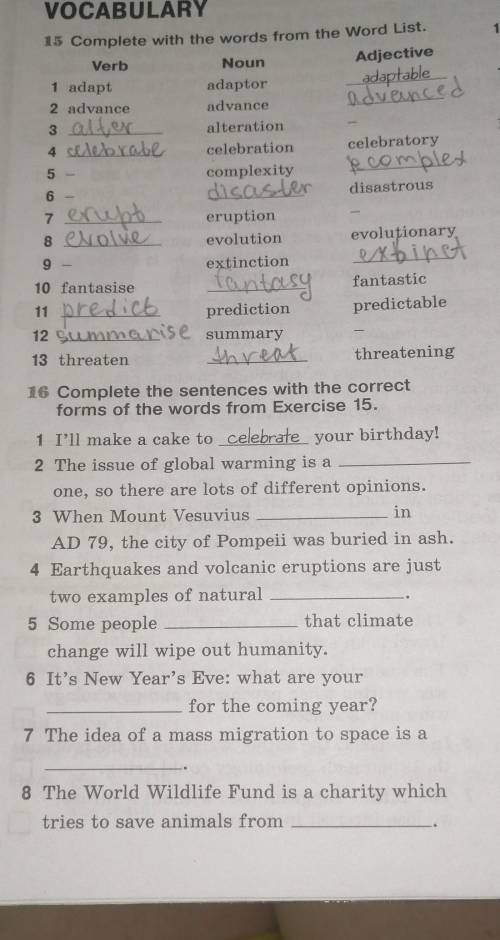 VOCABULARY
15 Complete with the words from the Word List.
Verb Noun Adjective
1 adapt adaptor adaptable
2 advance advance advanced
3 alter alteration –
4 celebrate celebration celebratory
5 – complexity complex
6 – disaster disastrous
7 erupt eruption –
8 evolve evolution evolutionary
9 – extinction extinct
10 fantasise fantasy fantastic
11 predict prediction predictable
12 summarise summary –
13 threaten threat threatening
16 Complete the sentences with the correct
forms of the words from Exercise 15.
1 I'll make a cake to celebrate your birthday!
2 The issue of global warming is a ____
one, so there are lots of different opinions.
3 When Mount Vesuvius ____ in
AD 79, the city of Pompeii was buried in ash.
4 Earthquakes and volcanic eruptions are just
two examples of natural ____.
5 Some people ____ that climate
change will wipe out humanity.
6 It's New Year's Eve: what are your
____ for the coming year?
7 The idea of a mass migration to space is a
____.
8 The World Wildlife Fund is a charity which
tries to save animals from ____.
1